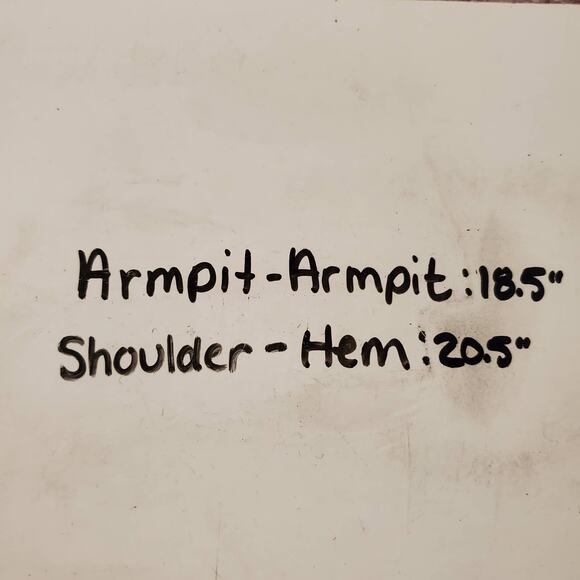 Armpit-Armpit:18.5"
Shoulder-Hem:20.5"